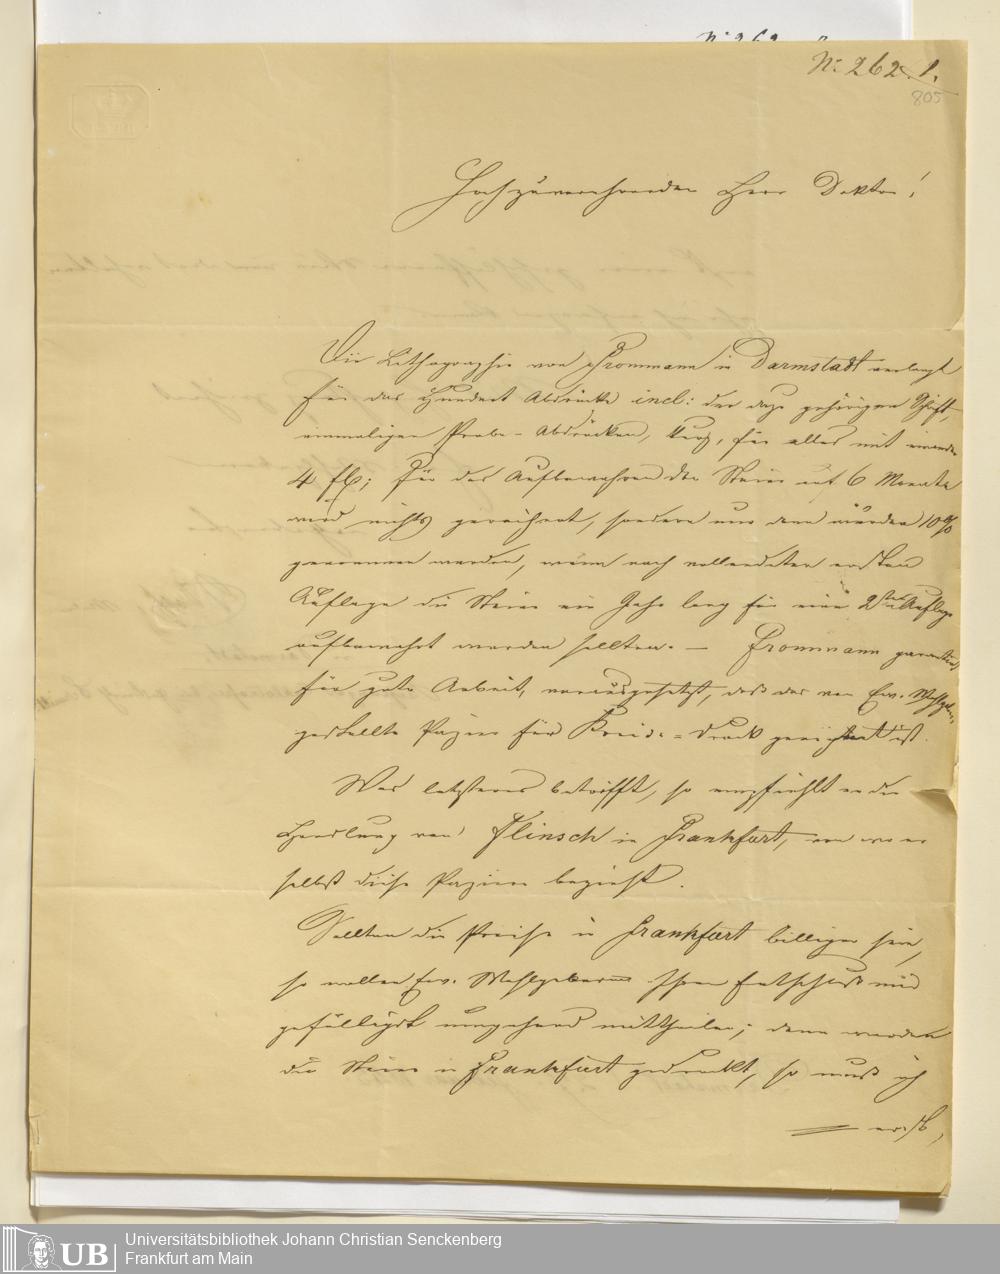 No 262. 1.
805
Hochzuverehrender Herr Doktor!
Die Lithographie von Frommann in Darmstadt verlangt
für das Hundert Abdrücke incl: der dazu gehörigen Schrift,
einmaligen Probe-Abdrücken, kurz, für alles mit einander
4 fl; für das Aufbewahren der Steine auf 6 Monate
wird nichts gerechnet, sondern nur dann würden 10%
genommen werden, wenn nach vollendeter ersten
Auflage die Steine ein Jahr lang für eine 2te Auflage
aufbewahrt werden sollten. — Frommann garantirt
für gute Arbeit, vorausgesetzt, daß das von Ew. Wohlgeboren
gestellte Papier für Kreide-Druck geeignet ist.
Was letzteres betrifft, so empfiehlt er die
Handlung von Flinsch in Frankfurt, von wo er
selbst diese Papiere bezieht.
Sollten die Preise in Frankfurt billiger sein,
so wollen Ew. Wohlgeboren Ihren Entschluß mir
gefälligst umgehend mittheilen; denn werden
die Steine in Frankfurt gedruckt, so muß ich
erst,
UB
Universitätsbibliothek Johann Christian Senckenberg
Frankfurt am Main